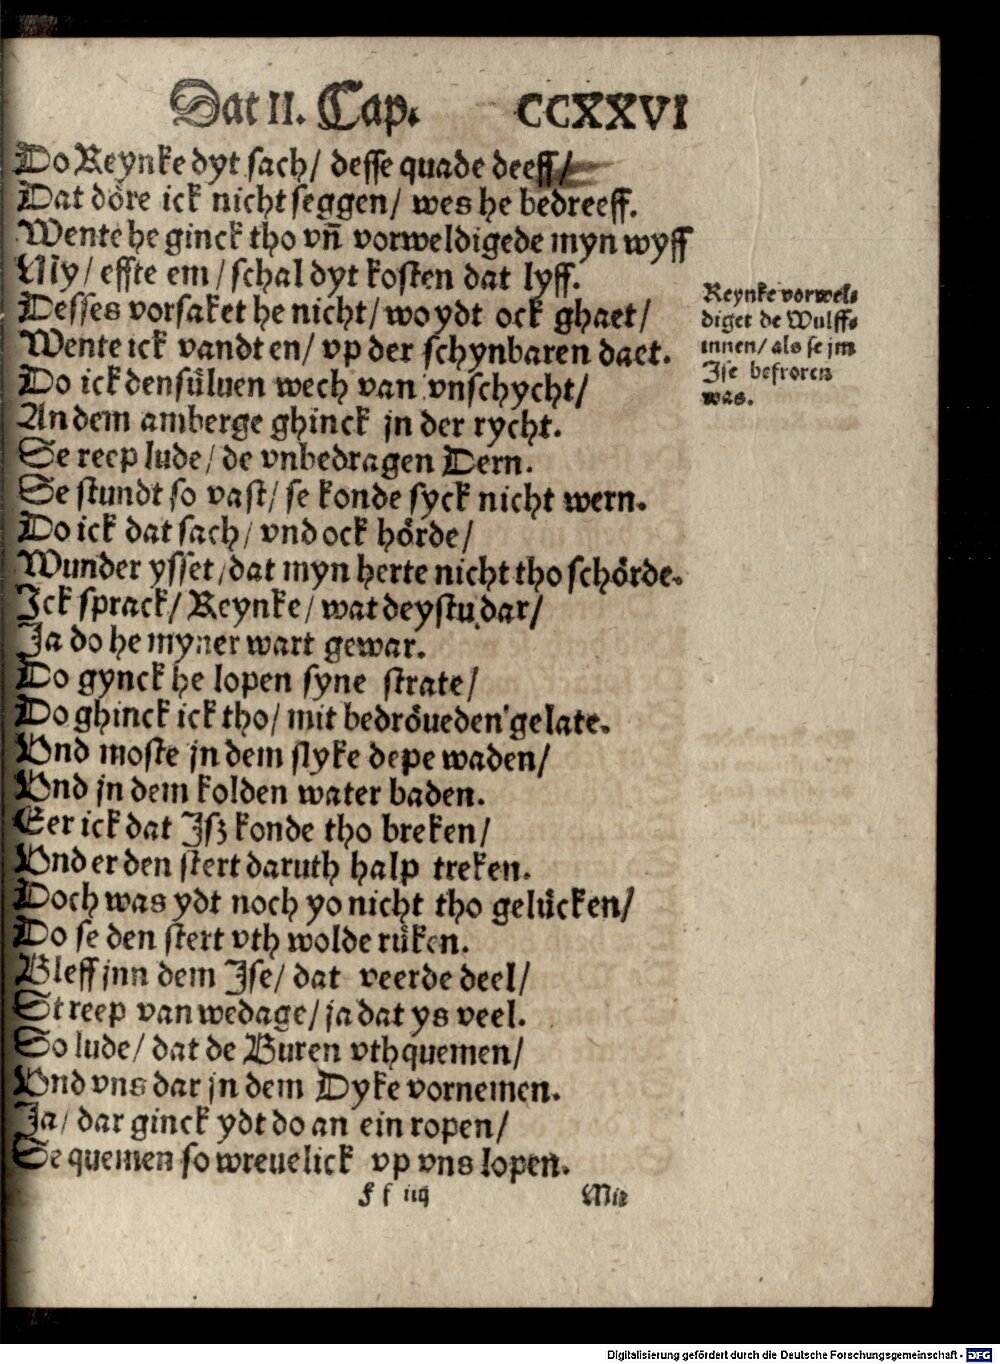 Dat II. Cap. CCXXVI
Do Reynke dyt sach/ desse quade deeff/
Dat döre ick nicht seggen/ wes he bedreeff.
Wente he ginck tho vñ vorweldigede myn wyff
My/ effte em/ schal dyt kosten dat lyff.
Desses vorsaket he nicht/ wo ydt ock ghaet/
Wente ick vandt en/ vp der schynbaren daet.
Do ick densüluen wech van vnschycht/
An dem amberge ghinck jn der rycht.
Se reep lude/ de vnbedragen Dern.
Se stundt so vast/ se konde syck nicht wern.
Do ick dat sach/ vnd ock hörde/
Wunder ysset/ dat myn herte nicht tho schörde.
Ick sprack/ Reynke/ wat deystu dar/
Ja do he myner wart gewar.
Do gynck he lopen syne strate/
Do ghinck ick tho/ mit bedröueden gelate.
Vnd moste jn dem slyke depe waden/
Vnd jn dem kolden water baden.
Eer ick dat Jsz konde tho breken/
Vnd er den stert daruth halp treken.
Doch was ydt noch yo nicht tho gelücken/
Do se den stert vth wolde rüken.
Bleff jnn dem Jse/ dat veerde deel/
St reep van wedage/ ja dat ys veel.
So lude/ dat de Buren vthquemen/
Vnd vns dar jn dem Dyke vornemen.
Ja/ dar ginck ydt do an ein ropen/
Se quemen so wreuelick vp vns lopen.
Reynke vorwel-
diget de Wulff-
innen/ als se jm
Jse befroren
was.
f f iiij Mit
Digitalisierung gefördert durch die Deutsche Forschungsgemeinschaft - DFG